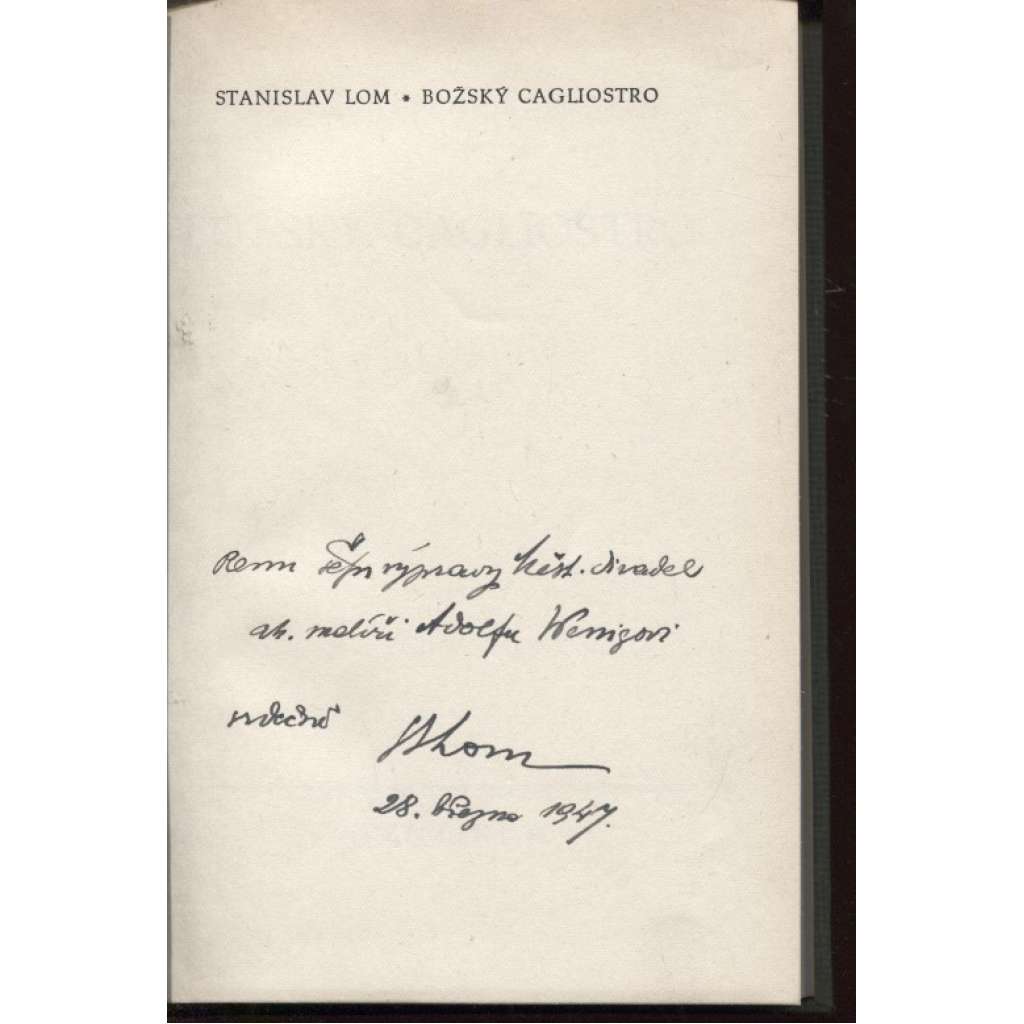 STANISLAV LOM * BOŽSKÝ CAGLIOSTRO
Panu šéfu výpravy Měst. divadel
ak. malíři Adolfu Wenigovi
srdečně
St Lom
28. března 1947.